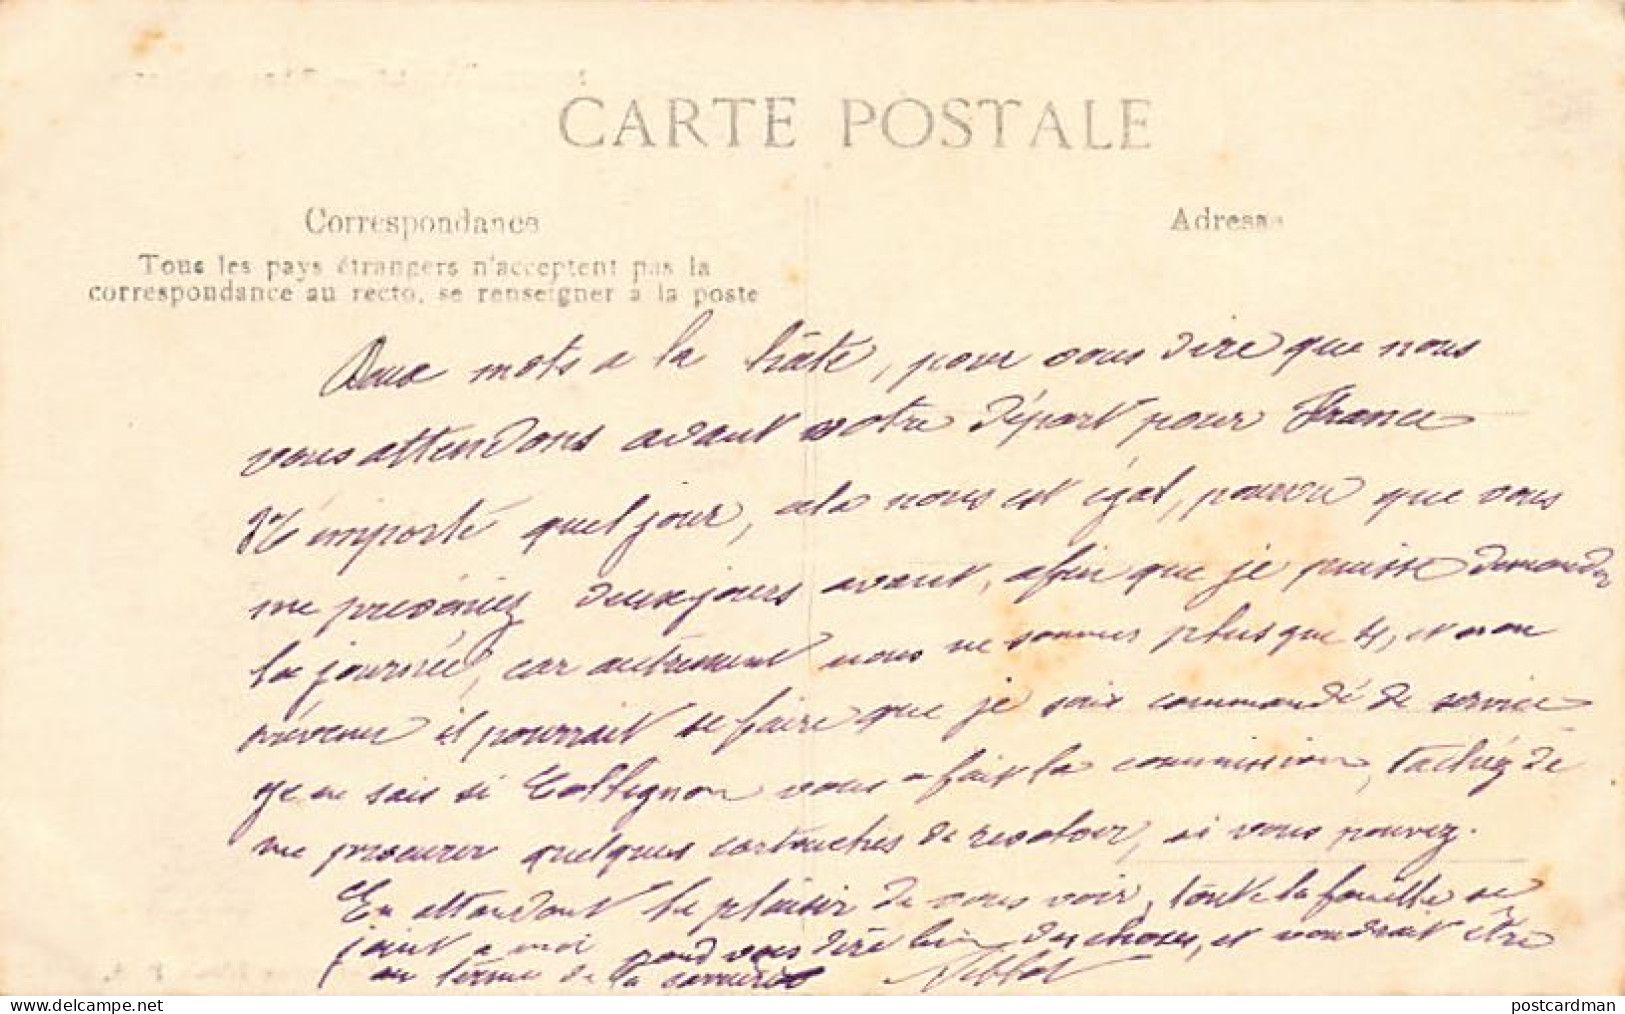 CARTE POSTALE
Correspondance
Adresse
Tous les pays étrangers n'acceptent pas la
correspondance au recto, se renseigner à la poste
Deux mots a la hâté, pour vous dire que nous
vous attendons avant votre départ pour France
N'importé quel jour, cela nous est égal, pourvu que vous
me préveniez deux jours avant, afin que je puisse demander
la journée, car autrement nous ne sommes plus que 4, et non
prévenu il pourrait se faire que je sois commandé de service
je ne sais si vous a fait la commission, tachéz de
me procurer quelques cartouches de revolver, si vous pouvez.
En attendant le plaisir de vous voir, toute la famille se
joint a moi pour vous dire bien des choses, et voudrait être
au terme de la
postcardman